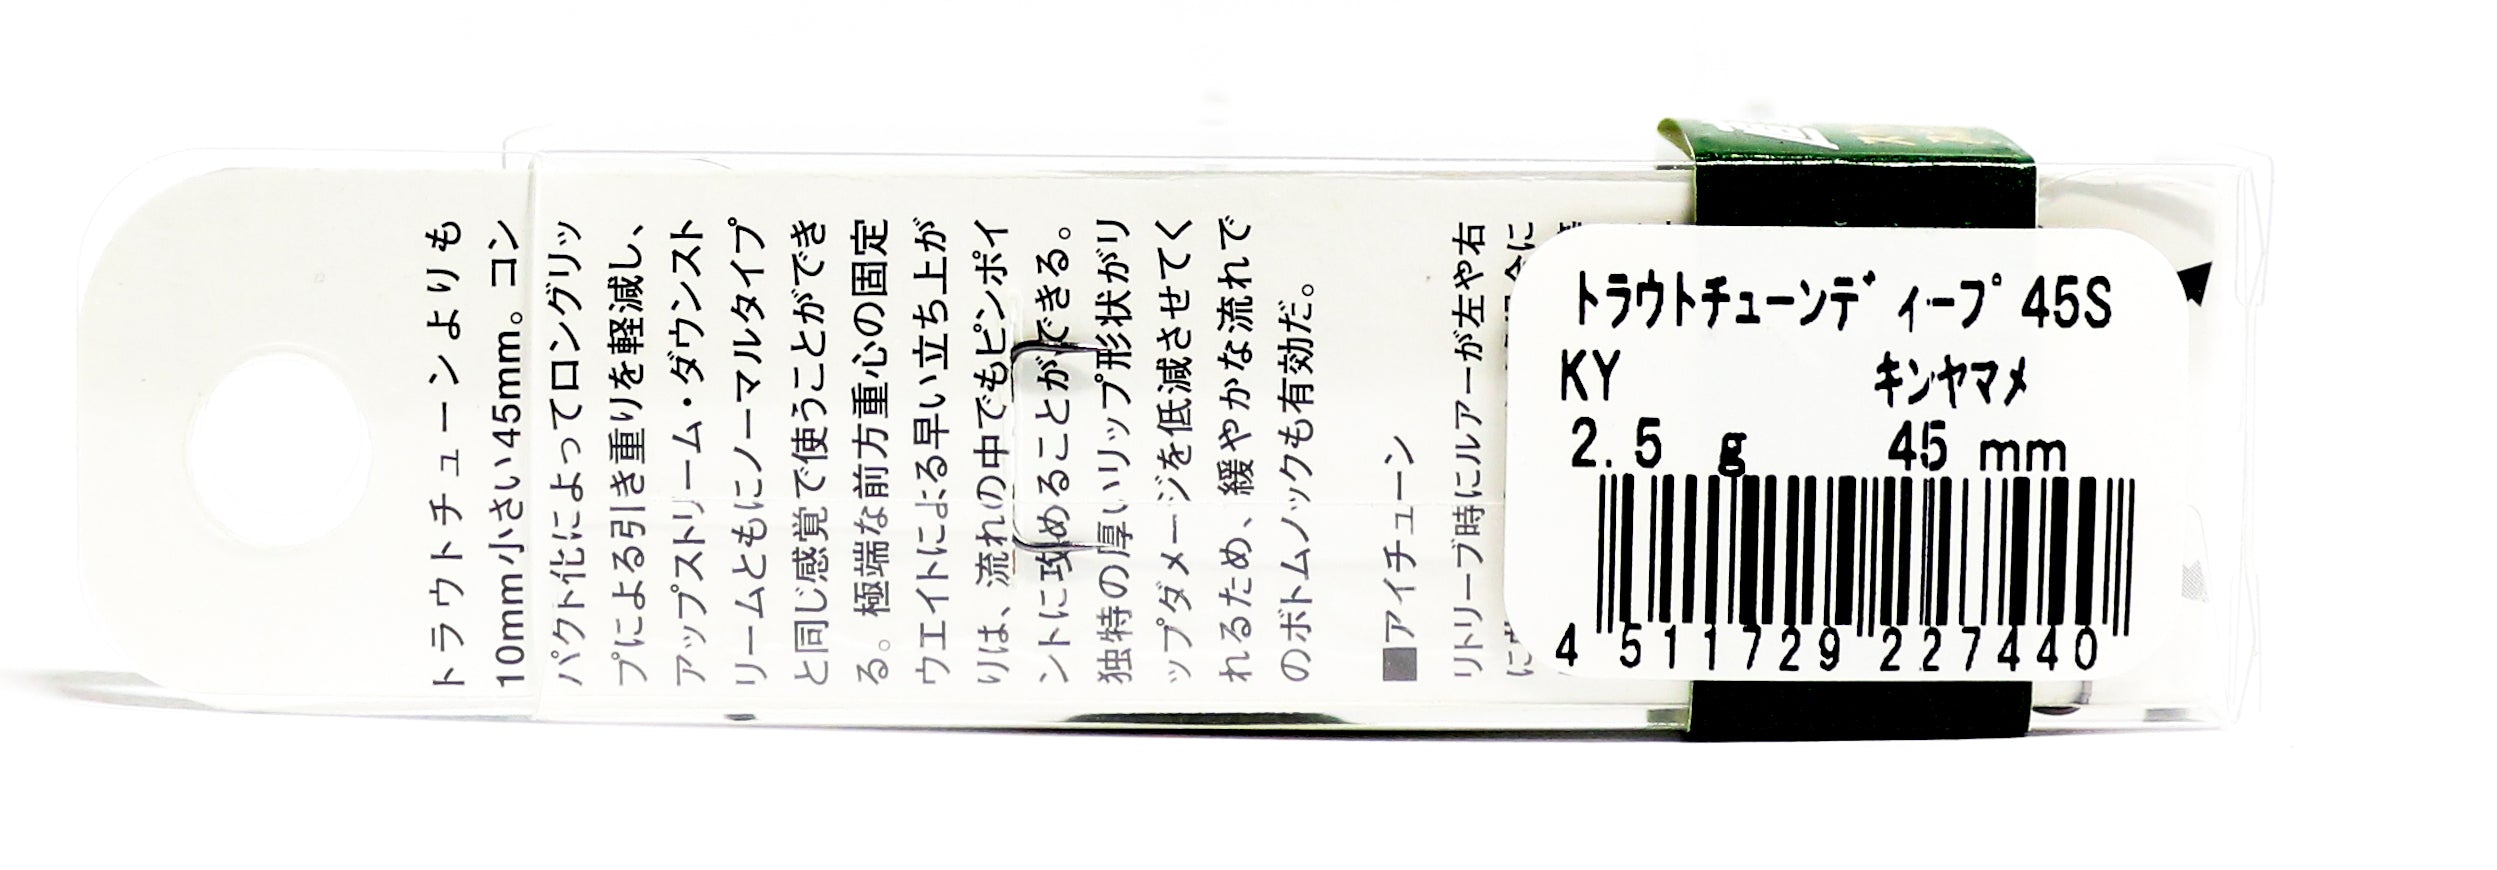 トラウトチューンよりも
10mm小さい45mm。コン
パクト化によってロングリッ
プによる引き重りを軽減し、
アップストリーム・ダウンスト
リームともにノーマルタイプ
と同じ感覚で使うことができ
る。極端な前方重心の固定
ウエイトによる早い立ち上が
りは、流れの中でもピンポイ
ントに攻めることができる。
独特の厚いリップ形状がリ
ップダメージを低減させてく
れるため、緩やかな流れで
のボトムノックも有効だ。
■アイチューン
リトリーブ時にルアーが左や右
に
トラウトチューンディープ 45S
KY キンヤマメ
2.5 g 45 mm
4 511729 227440